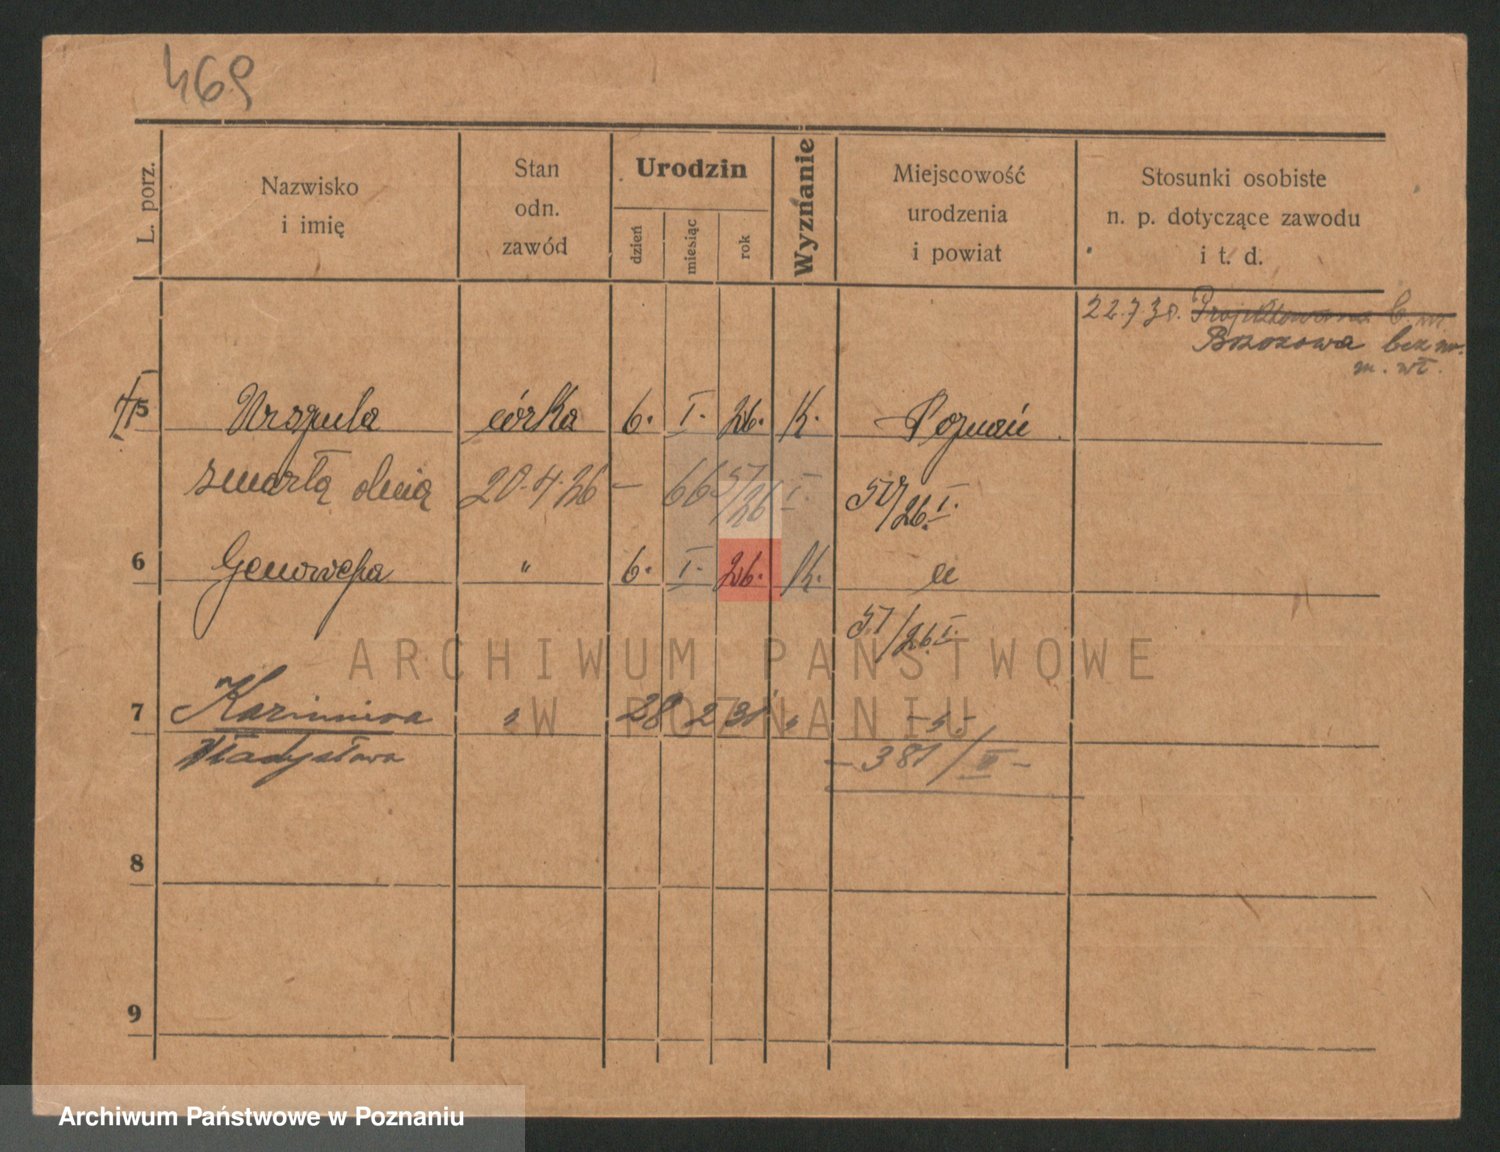 469
L. porz.
Nazwisko
i imię
Stan
odn.
zawód
Urodzin
dzień
miesiąc
rok
Wyznanie
Miejscowość
urodzenia
i powiat
Stosunki osobiste
n. p. dotyczące zawodu
i t. d.
22.7.30. Projektowana b. nr.
Brzozowa bez nr.
m. wł.
5 Urszula córka 6. I. 26. K. Poznań
zmarłą dnią 20.4.26 – 66 57/26 I. 57/26 I.
6 Genowefa " 6. I. 26. K. "
51/26 I.
7 Kazimiera " 28 2 31 " - " -
Władysława - 381/III -
8
9
ARCHIWUM PAŃSTWOWE
W POZNANIU
Archiwum Państwowe w Poznaniu